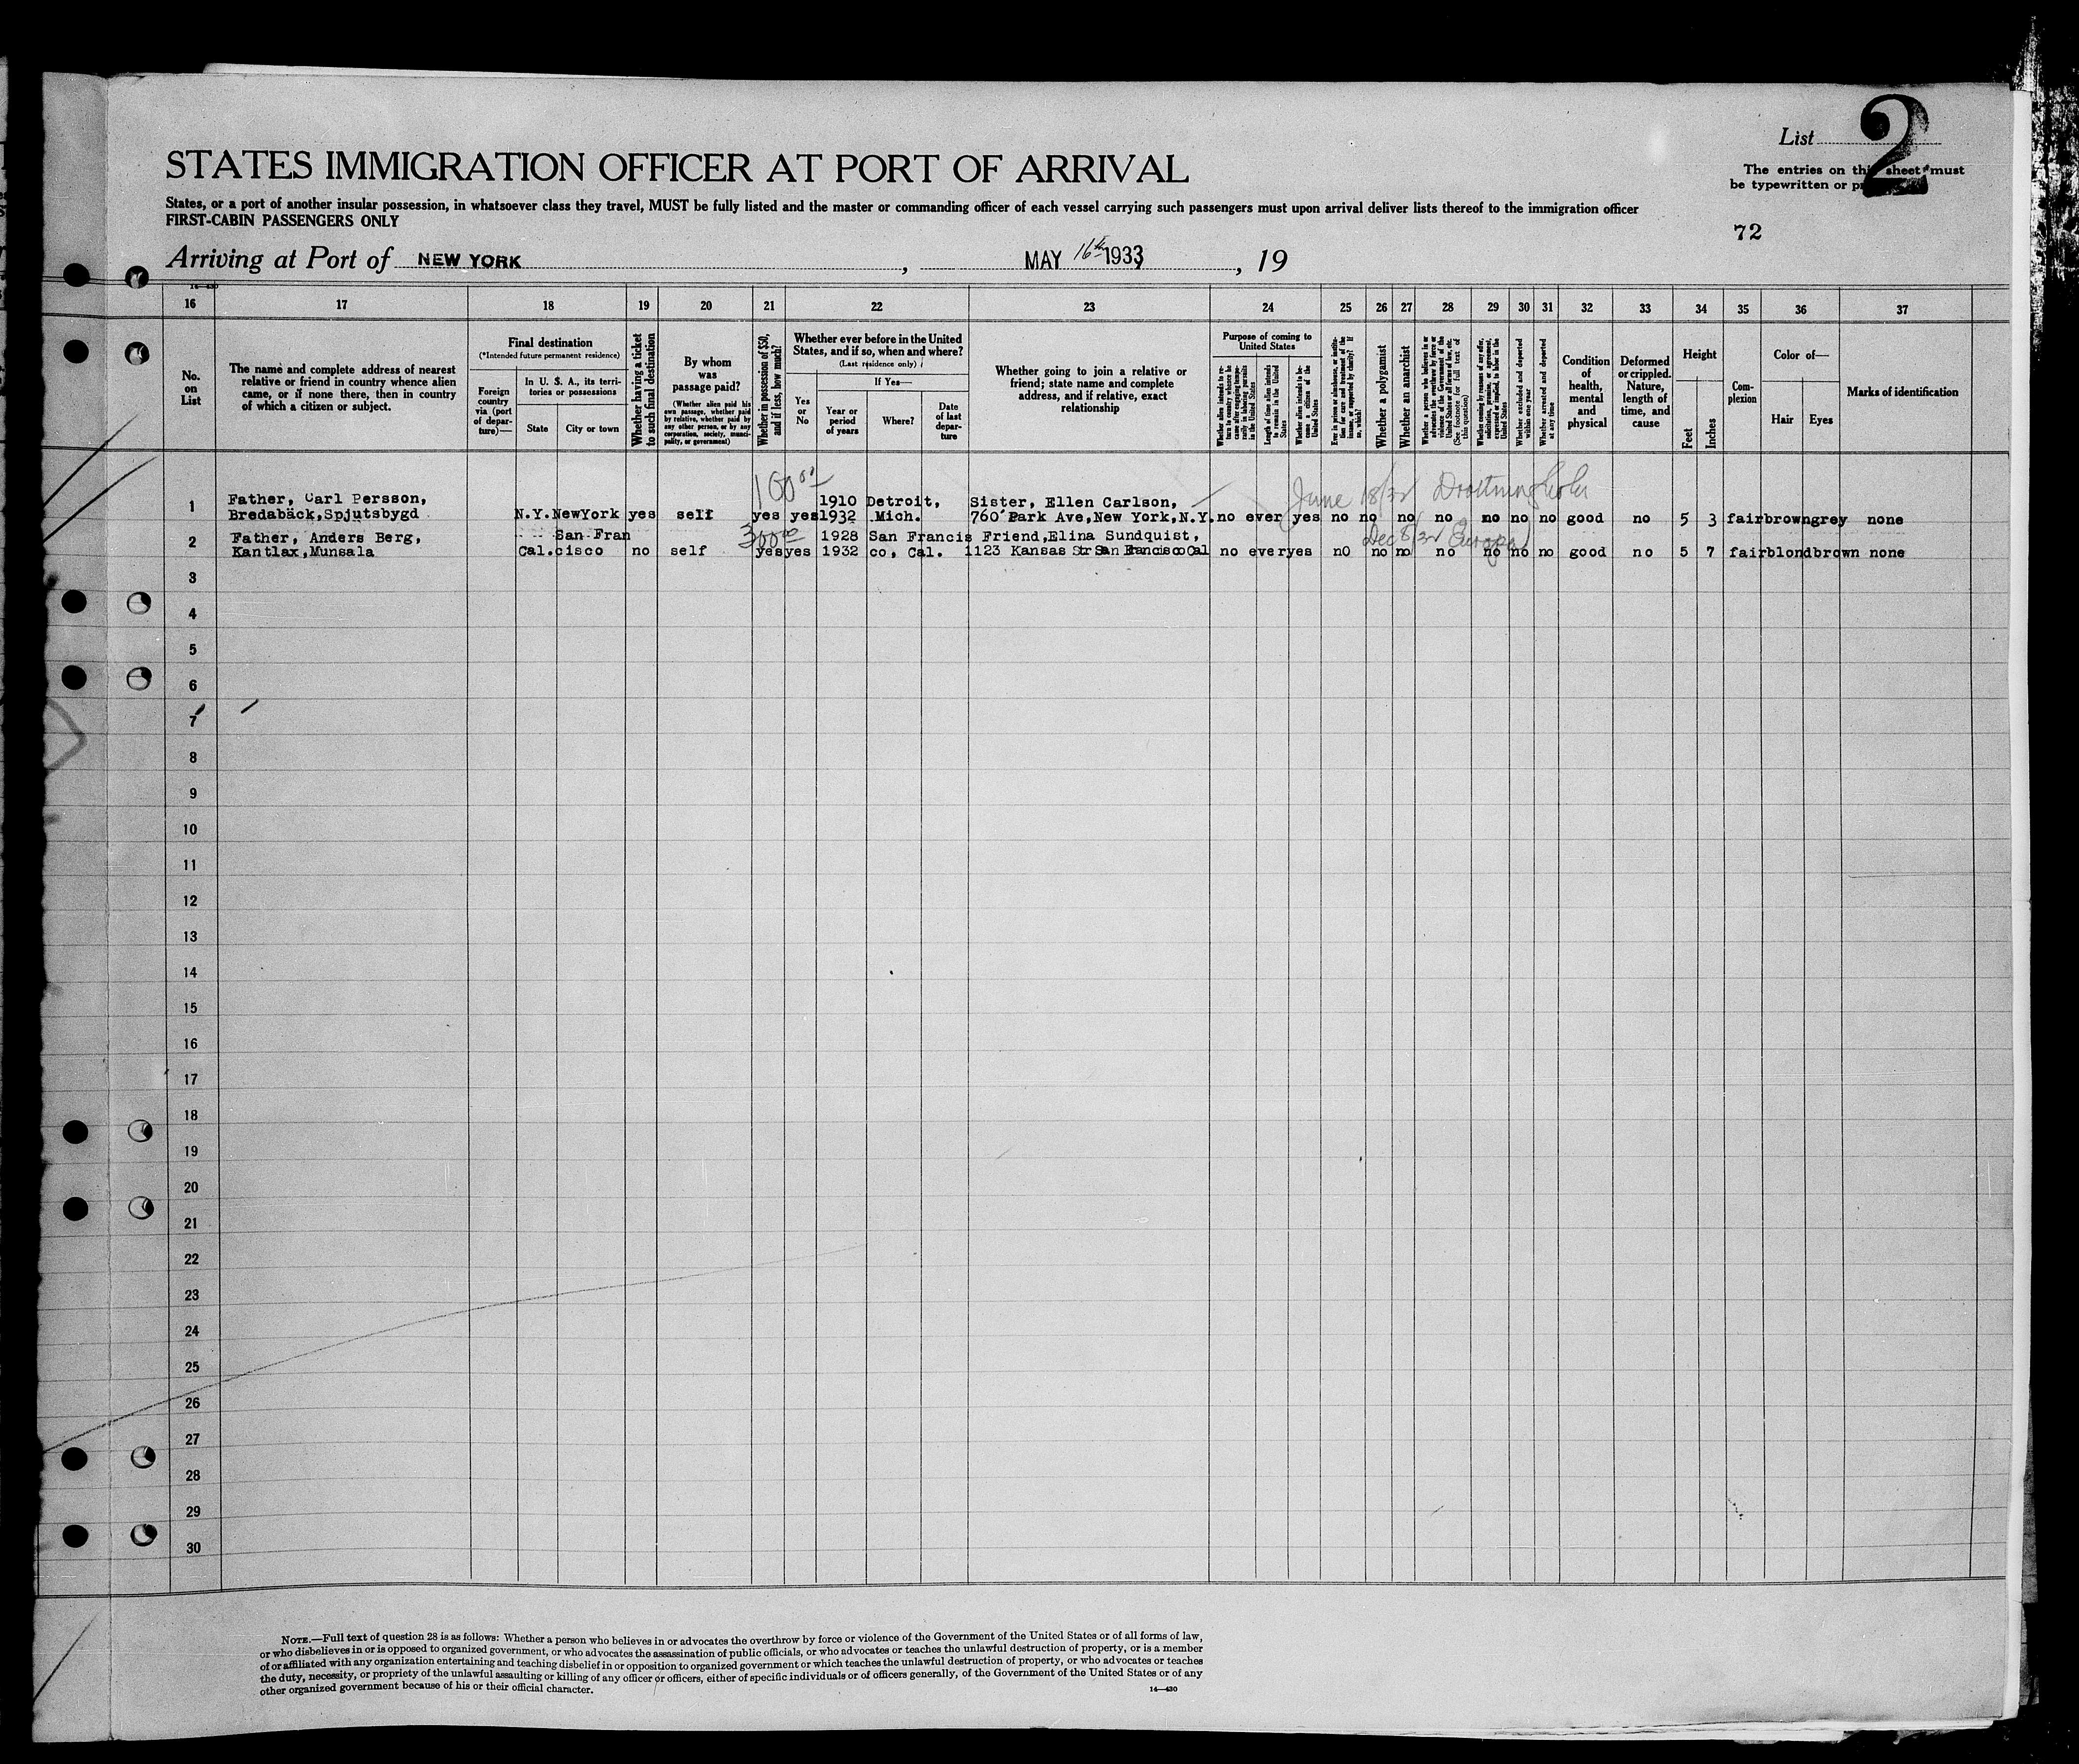 List 2
STATES IMMIGRATION OFFICER AT PORT OF ARRIVAL
The entries on this sheet must
be typewritten or
States, or a port of another insular possession, in whatsoever class they travel, MUST be fully listed and the master or commanding officer of each vessel carrying such passengers must upon arrival deliver lists thereof to the immigration officer
FIRST-CABIN PASSENGERS ONLY
72
Arriving at Port of NEW YORK, MAY 16th 1933, 19
14-430
16 17 18 19 20 21 22 23 24 25 26 27 28 29 30 31 32 33 34 35 36 37
No. on List
The name and complete address of nearest
relative or friend in country whence alien
came, or if none there, then in country
of which a citizen or subject.
Final destination
(*Intended future permanent residence)
Foreign country via (port of departure)—
In U. S. A., its territories or possessions
State
City or town
Whether having a ticket to such final destination
By whom was passage paid?
(Whether alien paid his own passage, whether paid by relative, whether paid by any other person, or by any corporation, society, municipality, or government)
Whether in possession of $50, and if less, how much?
Whether ever before in the United States, and if so, when and where?
(Last residence only)
Yes or No
If Yes—
Year or period of years
Where?
Date of last departure
Whether going to join a relative or
friend; state name and complete
address, and if relative, exact
relationship
Purpose of coming to United States
Whether alien intends to return to country whence he came after engaging temporarily in laboring pursuits in the United States
Length of time alien intends to remain in the United States
Whether alien intends to become a citizen of the United States
Ever in prison or almshouse, or institution for care and treatment of the insane, or supported by charity? If so, which?
Whether a polygamist
Whether an anarchist
Whether a person who believes in or advocates the overthrow by force or violence of the Government of the United States or all forms of law, etc. (See footnote for full text of this question)
Whether coming by reason of any offer, solicitation, promise, or agreement, expressed or implied, to labor in the United States
Whether excluded and deported within one year
Whether arrested and deported at any time
Condition of health, mental and physical
Deformed or crippled. Nature, length of time, and cause
Height
Feet
Inches
Complexion
Color of—
Hair
Eyes
Marks of identification
100 00 June 18/32 Drottningholm
1 Father, Carl Persson, 1910 Detroit, Sister, Ellen Carlson,
Bredabäck,Spjutsbygd N.Y. NewYork yes self yes yes 1932 Mich. 760 Park Ave,New York,N.Y. no ever yes no no no no no no no good no 5 3 fair brown grey none
300 00 Dec 8/32 Europa
2 Father, Anders Berg, San Fran 1928 San Francis Friend,Elina Sundquist,
Kantlax,Munsala Cal. cisco no self yes yes 1932 co, Cal. 1123 Kansas Str San Francisco Cal no ever yes no no no no no no no good no 5 7 fair blond brown none
3
4
5
6
7
8
9
10
11
12
13
14
15
16
17
18
19
20
21
22
23
24
25
26
27
28
29
30
NOTE.—Full text of question 28 is as follows: Whether a person who believes in or advocates the overthrow by force or violence of the Government of the United States or of all forms of law,
or who disbelieves in or is opposed to organized government, or who advocates the assassination of public officials, or who advocates or teaches the unlawful destruction of property, or is a member
of or affiliated with any organization entertaining and teaching disbelief in or opposition to organized government or which teaches the unlawful destruction of property, or who advocates or teaches
the duty, necessity, or propriety of the unlawful assaulting or killing of any officer or officers, either of specific individuals or of officers generally, of the Government of the United States or of any
other organized government because of his or their official character.
14-430